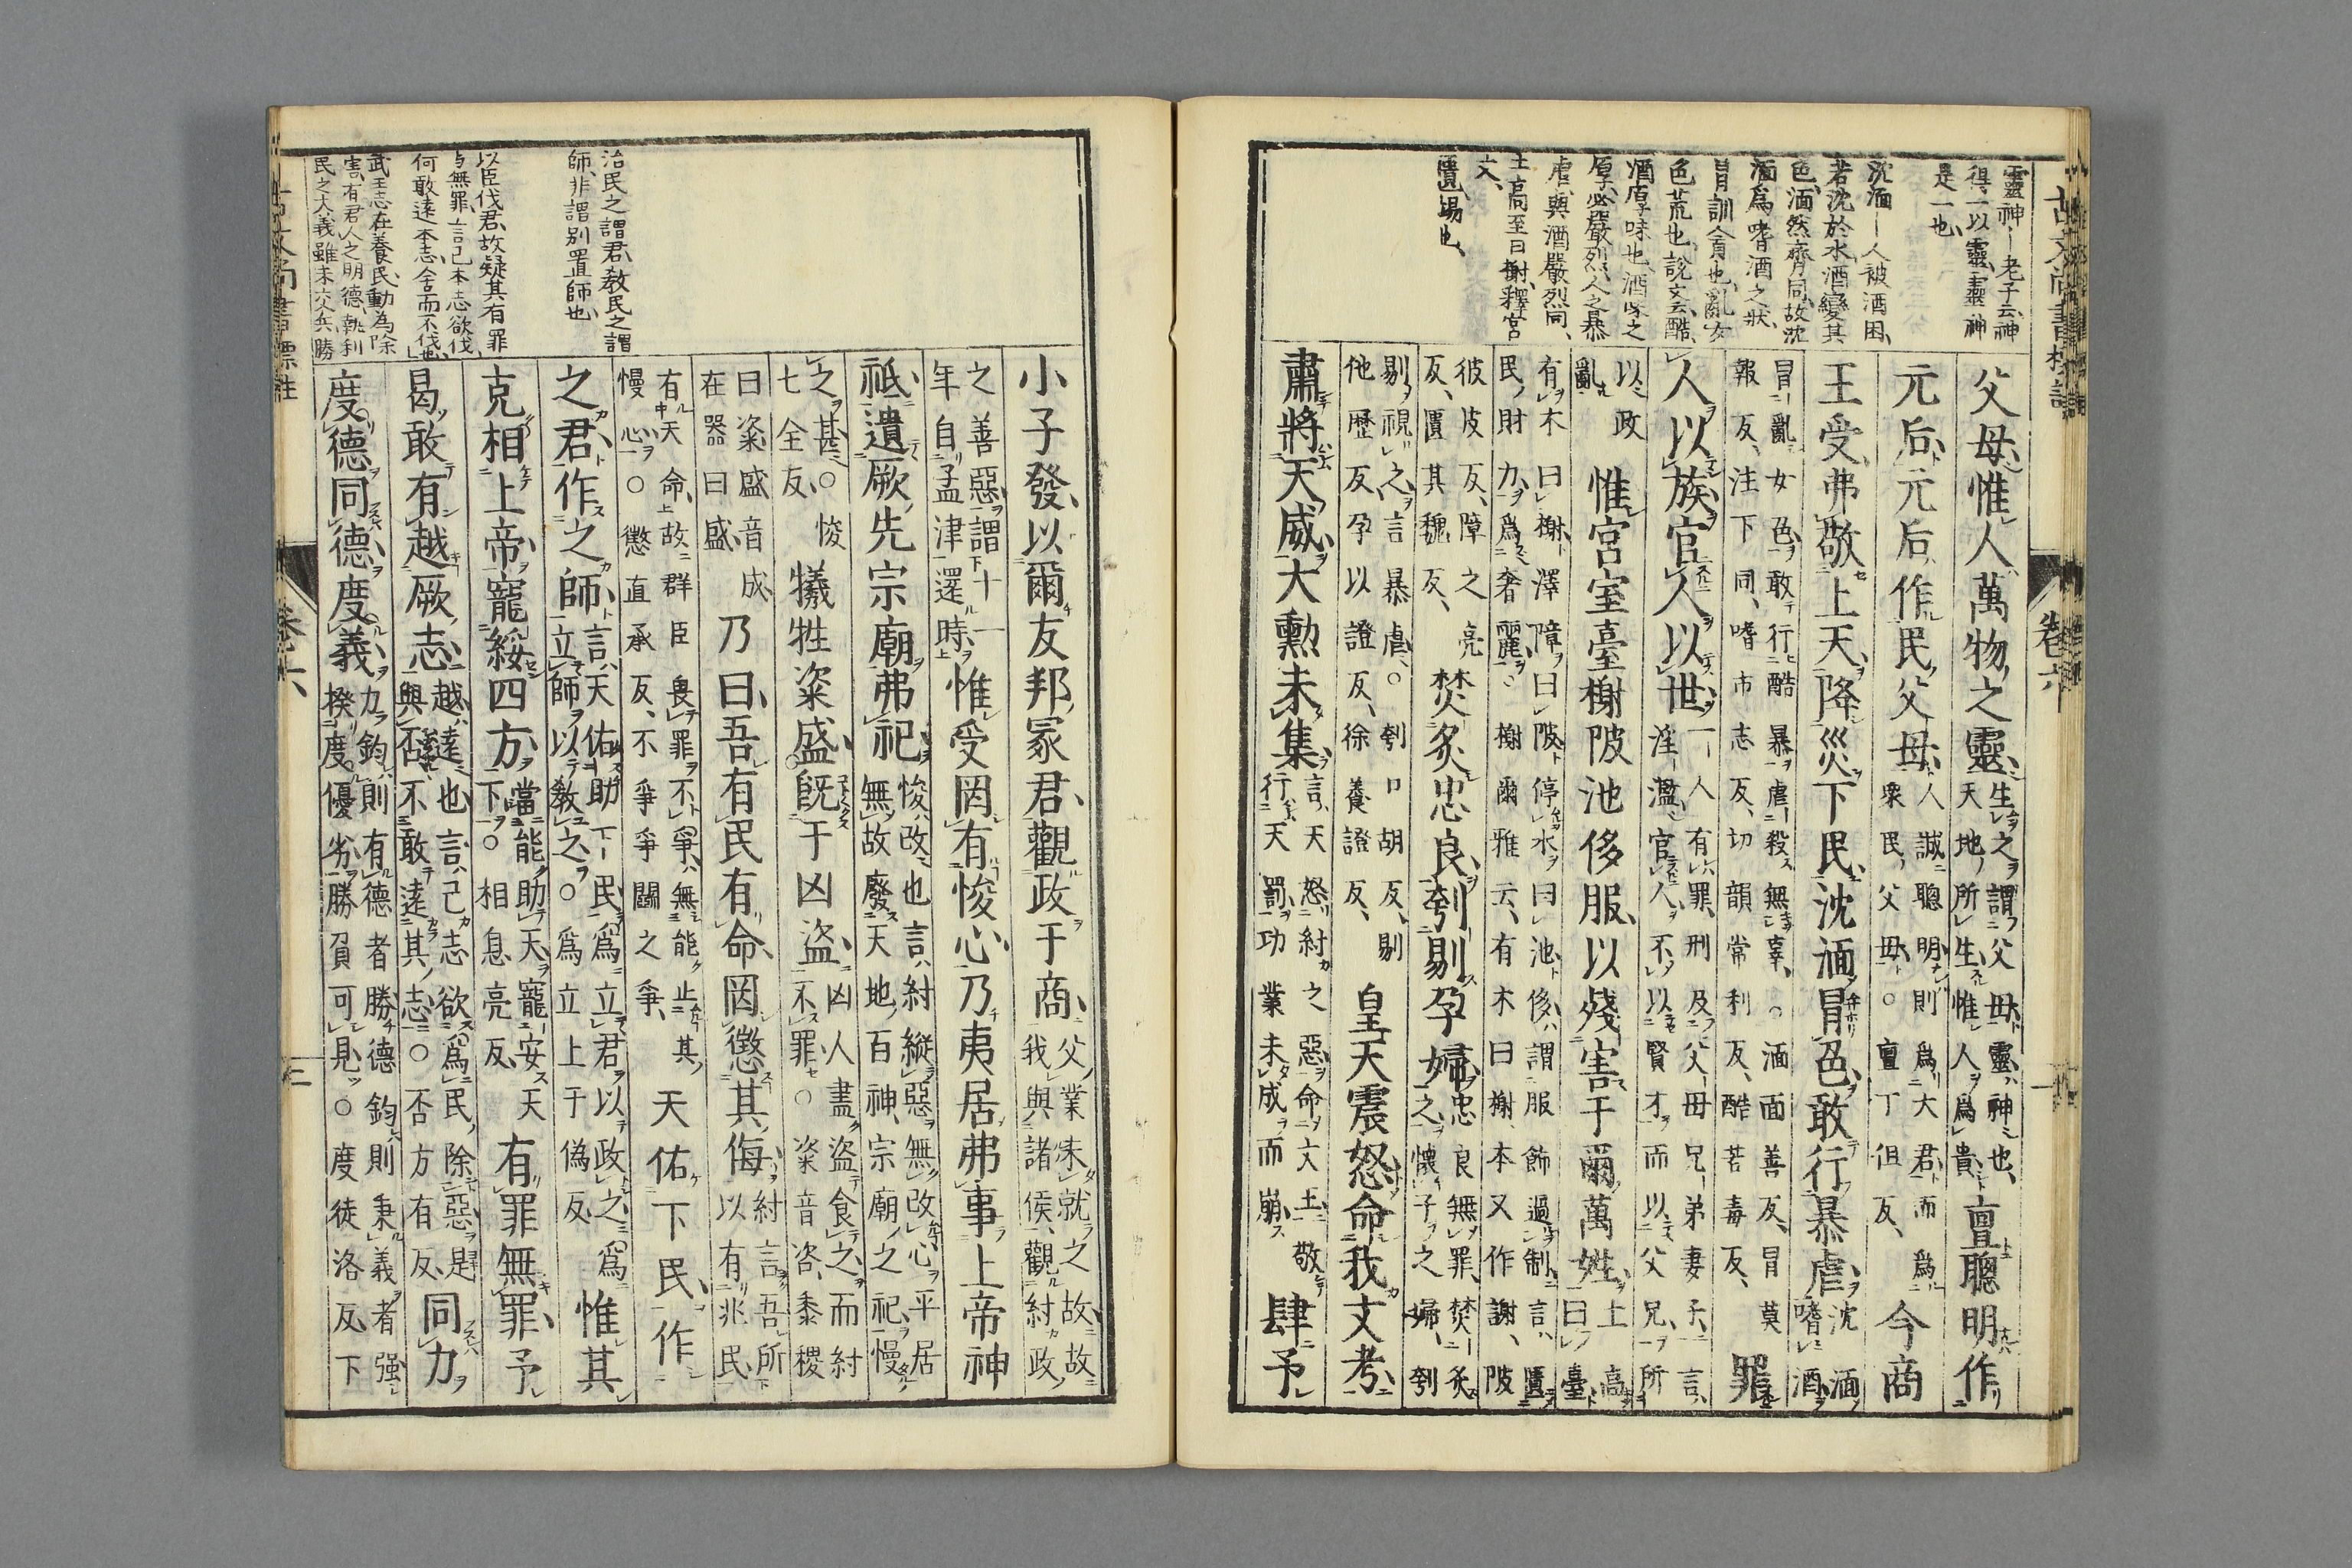 古文尚書標註 卷六
靈神―老子云神
得一以靈靈神
是一也
沈湎―人被酒困
若沈於水酒變其
色湎然齊同故沈
湎爲嗜酒之狀
冒訓貪也亂女
色荒也說文云酷
酒厚味也酒味之
厚必嚴烈人之暴
虐與酒嚴烈同
土高至曰榭釋宮
文
匱竭也
父母惟人萬物之靈生之謂父母靈神也天地所生惟人爲貴亶聰明作
元后元后作民父母人誠聰明則爲大君而爲衆民父母○亶丁但反今商
王受弗敬上天降災下民沈湎冒色敢行暴虐沈湎嗜酒
冒亂女色敢行酷暴虐殺無辜○湎面善反冒莫報反注下同嗜市志反切韻常利反酷苦毒反罪
人以族官人以世一人有罪刑及父母兄弟妻子言淫濫官人不以賢才而以父兄所
以政亂惟宮室臺榭陂池侈服以殘害于爾萬姓土高曰臺
有木曰榭澤障曰陂停水曰池侈謂服飾過制言匱民財力爲奢麗○榭爾雅云有木曰榭本又作謝陂
彼皮反障之亮反匱其魏反焚炙忠良刳剔孕婦忠良無罪焚炙之懷子之婦刳
剔視之言暴虐○刳口胡反剔他歷反孕以證反徐養證反皇天震怒命我文考
肅將天威大勳未集言天怒紂之惡命文王敬行天罰功業未成而崩肆予
治民之謂君教民之謂
師非謂別置師也
以臣伐君故疑其有罪
与無罪言己本志欲伐
何敢遠本志舍而不伐也
武王志在養民動為除
害有君人之明德執利
民之大義雖未交兵勝
小子發以爾友邦冢君觀政于商父業未就之故故我與諸侯觀紂政
之善惡謂十一年自孟津還時惟受罔有悛心乃夷居弗事上帝神
祗遺厥先宗廟弗祀悛改也言紂縱惡無改心平居無故廢天地百神宗廟之祀慢
之甚○悛七全反犧牲粢盛既于凶盜凶人盡盜食之而紂不罪○粢音咨黍稷
曰粢盛音成在器曰盛乃曰吾有民有命罔懲其侮紂言吾所以有兆民
有天命故群臣畏罪不爭無能止其慢心○懲直承反不爭爭鬭之爭天佑下民作
之君作之師言天佑助下民爲立君以政之爲立師以教之○爲立上于偽反惟其
克相上帝寵綏四方當能助天寵安天下○相息亮反有罪無罪予
曷敢有越厥志越遠也言己志欲爲民除惡是與否不敢遠其志○否方有反同力
度德同德度義力鈞則有德者勝德鈞則秉義者强揆度優劣勝負可見○度徒洛反下